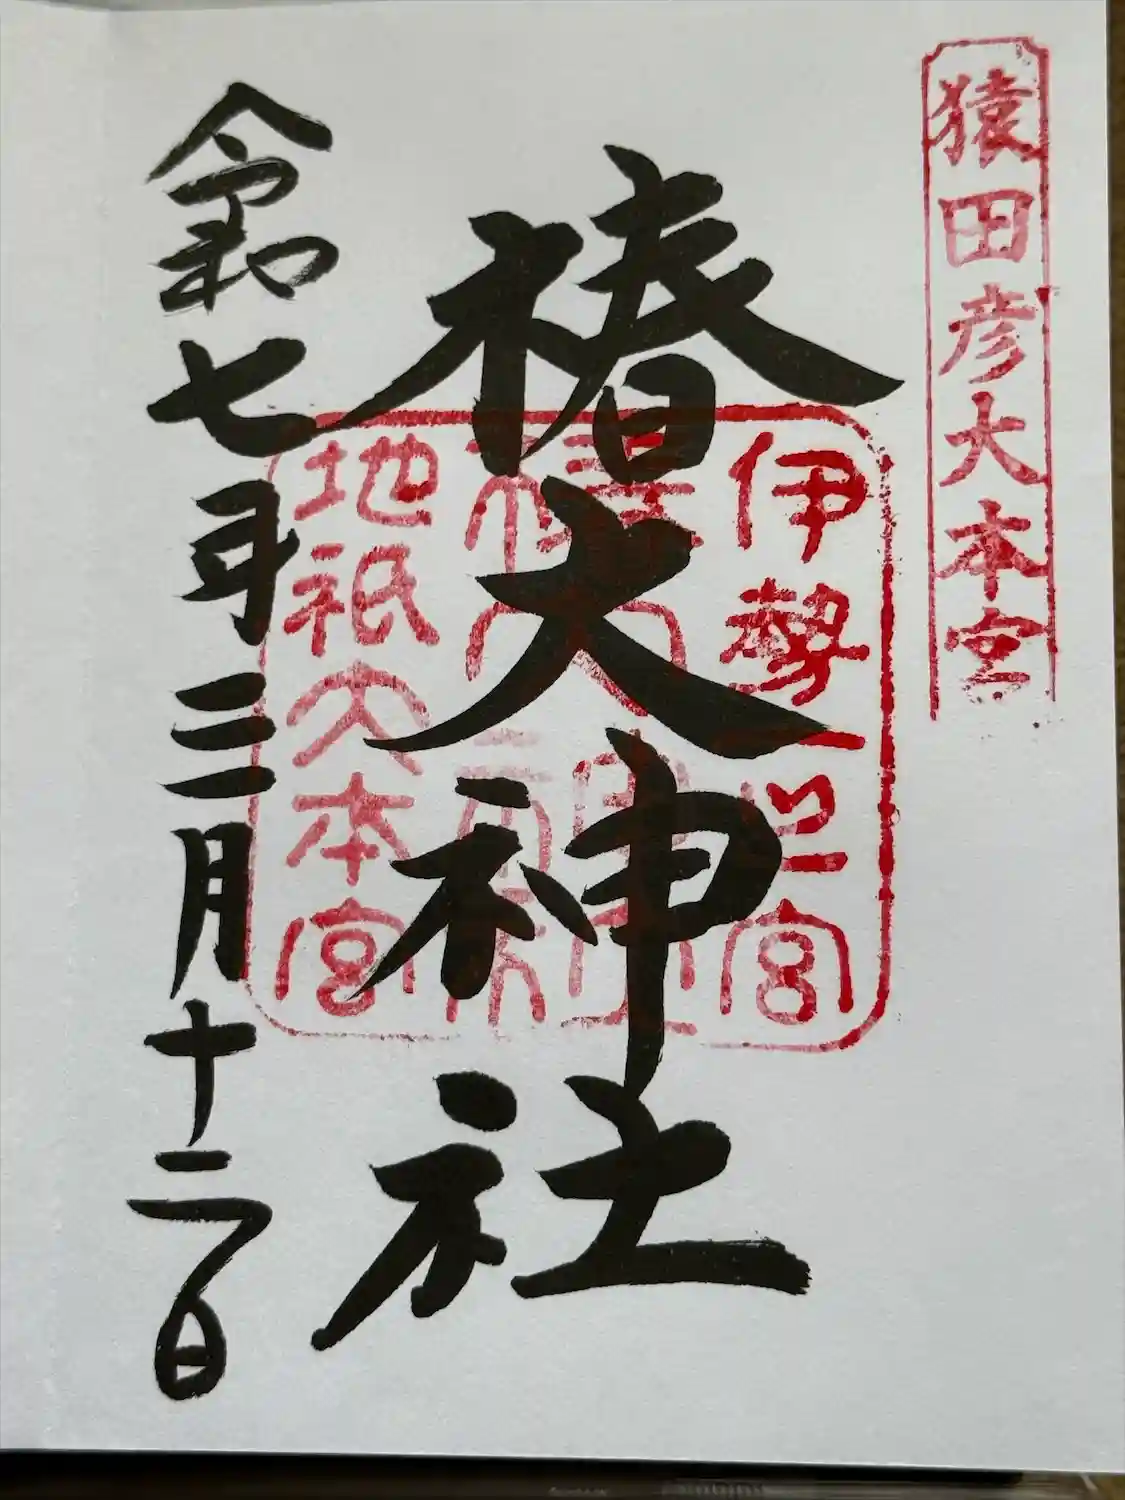 猿田彦大本宮
椿大神社
伊勢一之宮
椿大神社
地祇大本宮
令和七年三月十二日